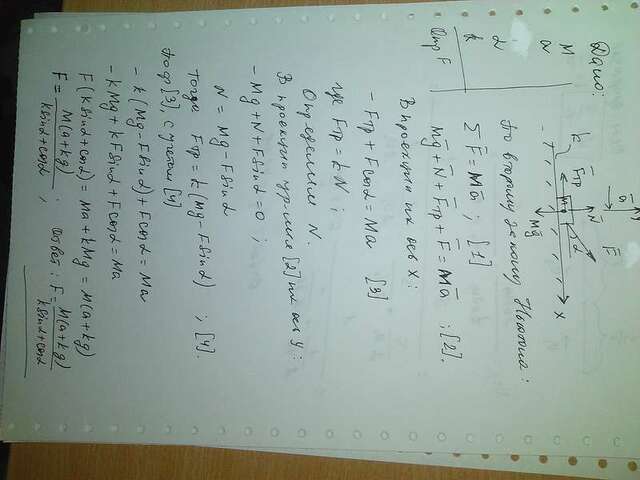 Дано:
M
a
α
k
Опр F
a
y
N
F
Fтр
k
Mg
α
x
По второму закону Ньютона:
ΣF̄ = Mā ; [1]
Mḡ + N̄ + F̄тр + F̄ = Mā ; [2].
В проекции на ось x:
- Fтр + Fcosα = Ma [3]
где Fтр = kN ;
Определим N.
В проекции ур-ния [2] на ось y:
- Mg + N + Fsinα = 0 ;
N = Mg - Fsinα
Тогда Fтр = k(Mg - Fsinα) ; [4].
[3], с учетом [4]
- k(Mg - Fsinα) + Fcosα = Ma
- kMg + kFsinα + Fcosα = Ma
F(ksinα + cosα) = Ma + kMg = M(a+kg)
F = M(a+kg) / ksinα + cosα ; Ответ: F = M(a+kg) / ksinα + cosα